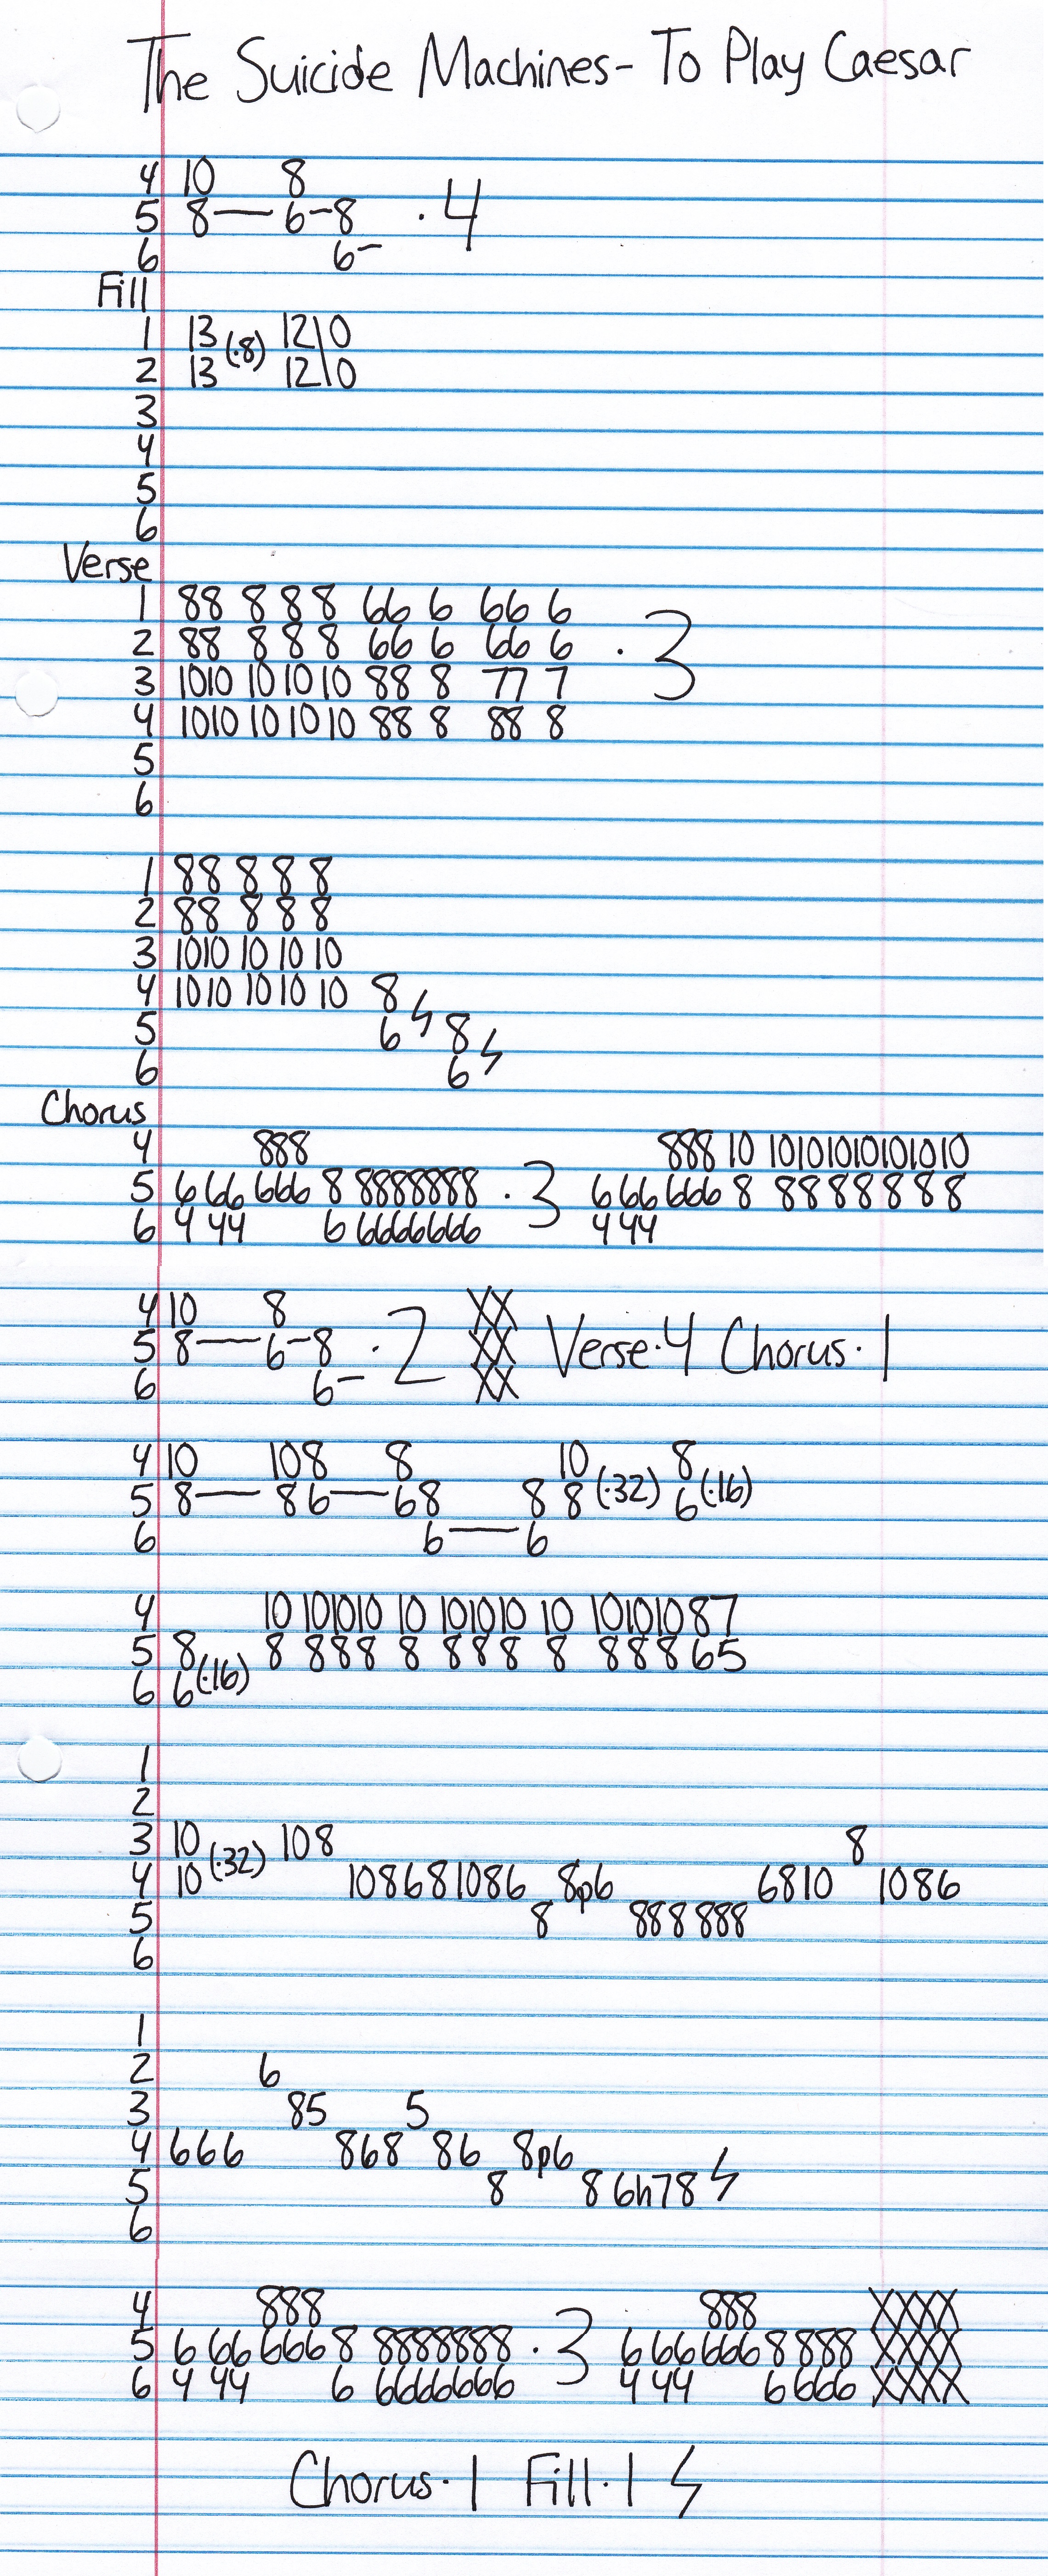 The Suicide Machines - To Play Caesar
4 10 8
5 8— 6-8 · 4
6 6-
Fill
1 13 (·8) 12\0
2 13 12\0
3
4
5
6
Verse
1 88 8 8 8 66 6 66 6
2 88 8 8 8 66 6 66 6 · 3
3 1010 10 10 10 88 8 77 7
4 1010 10 10 10 88 8 88 8
5
6
1 88 8 8 8
2 88 8 8 8
3 1010 10 10 10
4 1010 10 10 10 8
5 6 8
6 6
Chorus
4 888 888 10 10101010101010
5 6 66 666 8 8888888 · 3 6 66 666 8 8888888
6 4 44 6 6666666 4 44
4 10 8
5 8— 6-8 · 2 XX Verse·4 Chorus·1
6 6-
4 10 108 8 10 8
5 8— 86— 68 8 8 (·32) 6 (·16)
6 6— 6
4 10 101010 10 101010 10 10101087
5 8 8 888 8 888 8 88865
6 6 (·16)
1
2
3 10 (·32) 108 8
4 10 108681086 8p6 6810 1086
5 8 888888
6
1
2 6
3 85 5
4 666 868 86 8p6
5 8 8 6h78
6
4 888 888 XXXX
5 6 66 666 8 8888888 · 3 6 66 666 8 888 XXXX
6 4 44 6 6666666 4 44 6 666 XXXX
Chorus·1 Fill·1